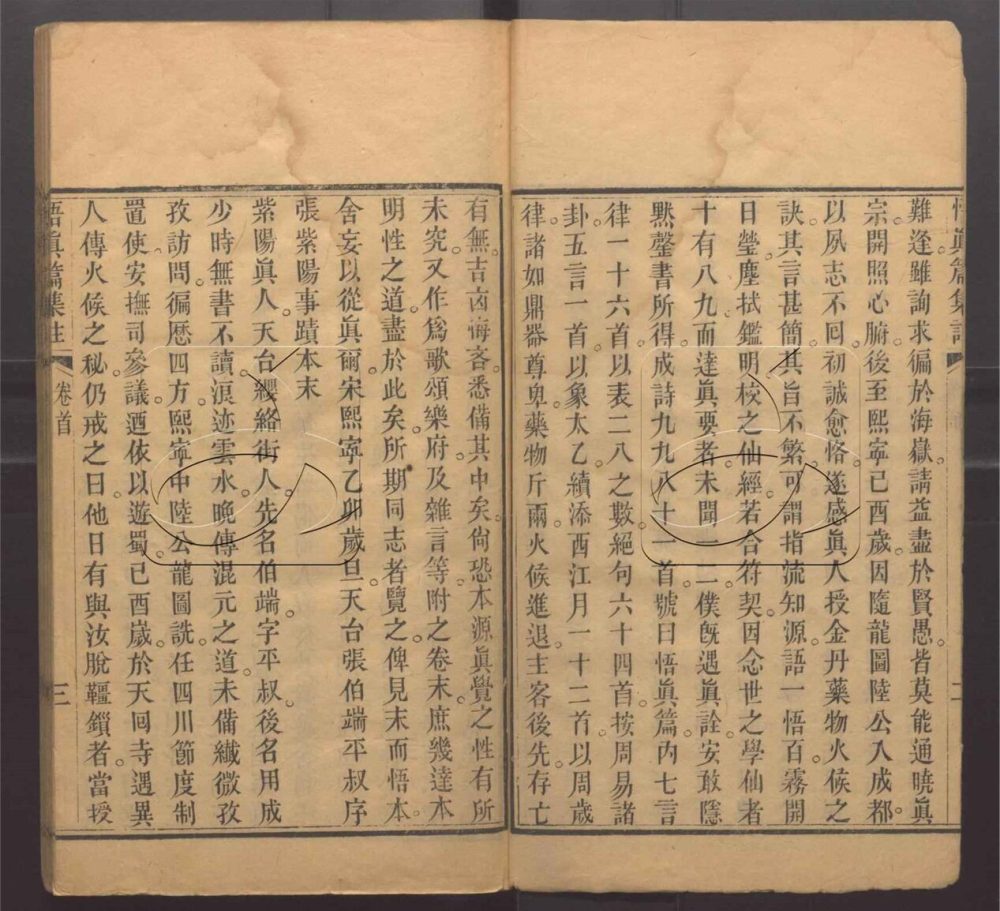 悟真篇集註
二
難逢雖詢求徧於海嶽請益盡於賢愚皆莫能通曉眞
宗開照心腑後至熙寧己酉歲因隨龍圖陸公入成都
以夙志不囘初誠愈恪遂感眞人授金丹藥物火候之
訣其言甚簡其旨不繁可謂指流知源語一悟百霧開
日瑩塵拭鑑明校之仙經若合符契因念世之學仙者
十有八九而達眞要者未聞一二僕旣遇眞詮安敢隱
黙罄書所得成詩九九八十一首號曰悟眞篇內七言
律一十六首以表二八之數絕句六十四首按周易諸
卦五言一首以象太乙續添西江月一十二首以周歲
律諸如鼎器尊卑藥物斤兩火候進退主客後先存亡
有無吉凶悔吝悉備其中矣尙恐本源眞覺之性有所
未究又作爲歌頌樂府及雜言等附之卷末庶幾達本
明性之道盡於此矣所期同志者覽之俾見末而悟本
舍妄以從眞爾宋熙寧乙卯歲旦天台張伯端平叔序
張紫陽事蹟本末
紫陽眞人天台纓絡街人先名伯端字平叔後名用成
少時無書不讀浪迹雲水晚傳混元之道未備孅微孜
孜訪問徧歷四方熙寧中陸公龍圖詵任四川節度制
置使安撫司參議迺依以遊蜀己酉歲於天囘寺遇異
人傳火候之秘仍戒之曰他日有與汝脫韁鎖者當授
悟眞篇集註
卷首
三